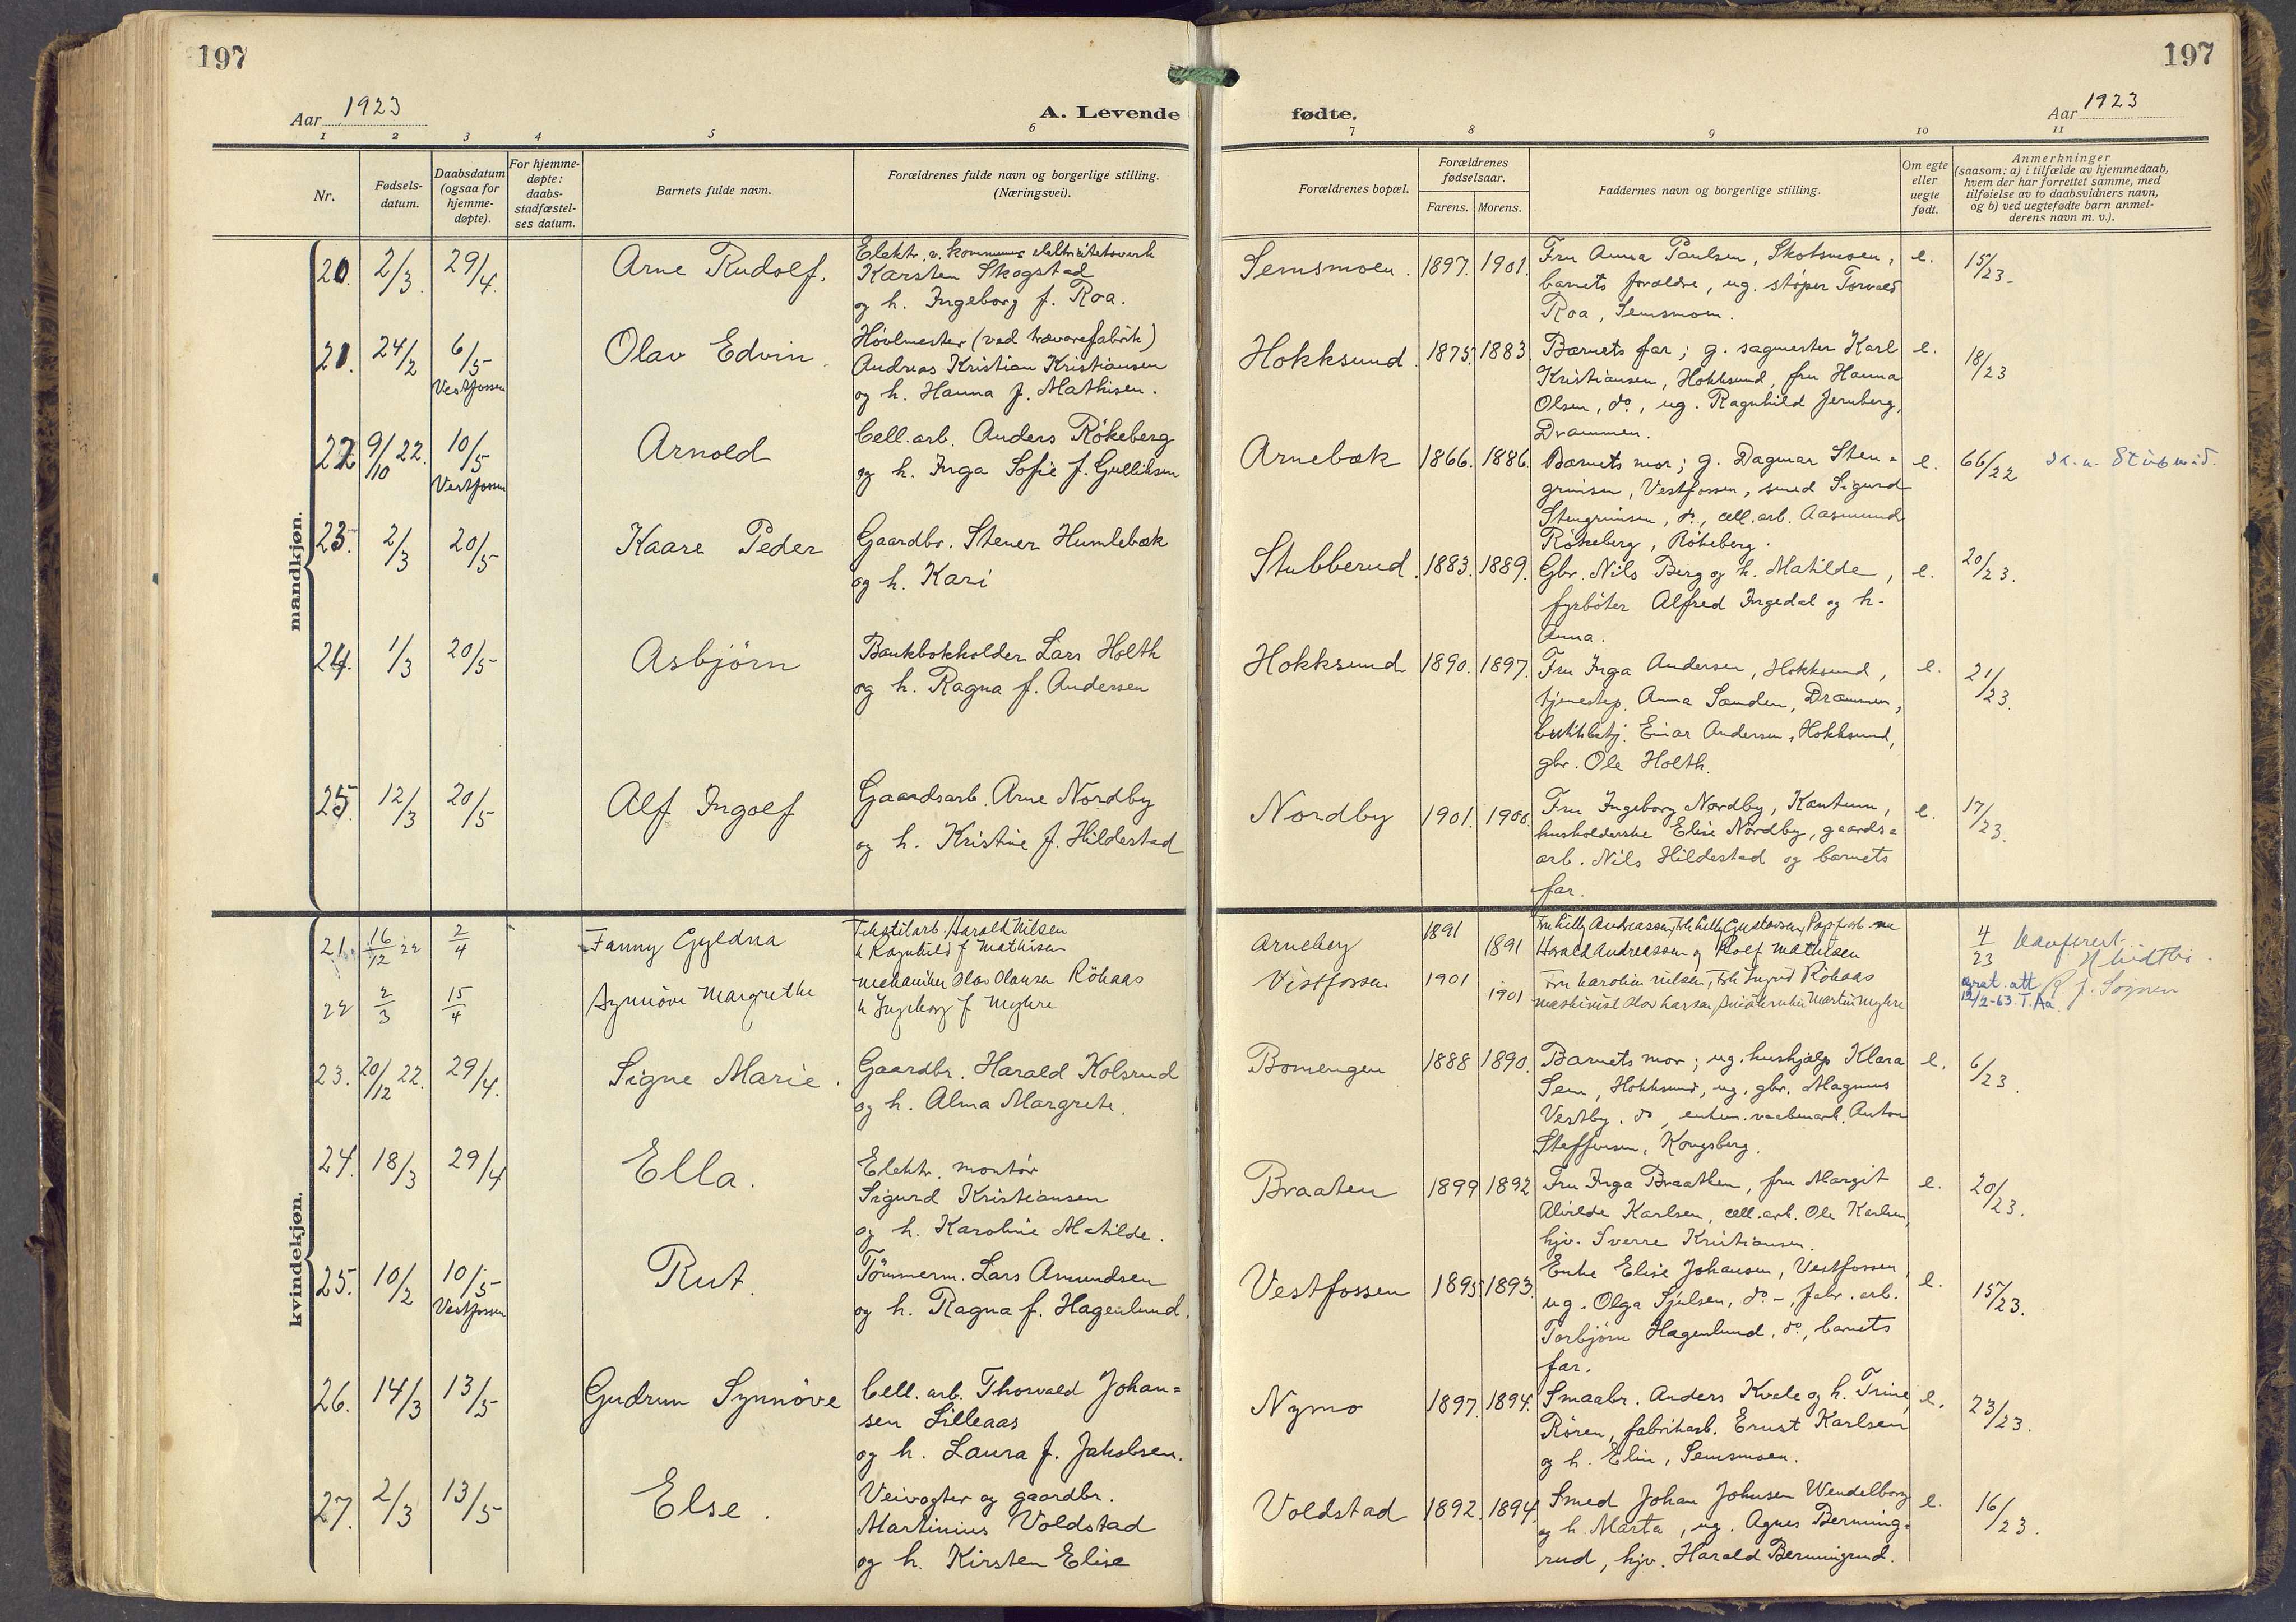 197
197
Aar 1923
A. Levende
fødte.
Aar 1923
1 2 3 4 5 6 7 8 9 10 11
Nr.
Fødsels-
datum.
Daabsdatum
(ogsaa for
hjemme-
døpte).
For hjemme-
døpte:
daabs-
stadfæstel-
ses datum.
Barnets fulde navn.
Forældrenes fulde navn og borgerlige stilling.
(Næringsvei).
Forældrenes bopæl.
Forældrenes
fødselsaar.
Farens. Morens.
Faddernes navn og borgerlige stilling.
Om egte
eller
uegte
født.
Anmerkninger
(saasom: a) i tilfælde av hjemmedaab,
hvem der har forrettet samme, med
tilføielse av to daabsvidners navn,
og b) ved uegtefødte barn anmel-
derens navn m. v.).
mandkjøn.
20. 2/3. 29/4. Arne Rudolf.
Elektr. v. kommunes elektricitetsverk
Karsten Skogstad
og h. Ingeborg f. Roa.
Semsmoen. 1897. 1901.
Fru Anna Paulsen, Skotsmoen,
barnets forældre, ug. støper Torvald
Roa, Semsmoen.
e. 15/23.
21. 24/2 6/5
Vestfossen
Olav Edvin.
Høvlmester (ved trævarefabrik)
Andreas Kristian Kristiansen
og h. Hanna f. Mathisen.
Hokksund. 1875. 1883.
Barnets far; g. sagmester Karl
Kristiansen, Hokksund, fru Hanna
Olsen, do., ug. Ragnhild Jernberg,
Drammen.
e. 18/23
22. 9/10 22. 10/5
Vestfossen
Arnold
Cell. arb. Anders Røkeberg
og h. Inga Sofie f. Gulliksen
Arnebæk 1866. 1886.
Barnets mor; g. Dagmar Sten-
grimsen, Vestfossen, smed Sigurd
Stengrimsen, do., cell. arb. Aasmund
Røkeberg, Røkeberg.
e. 66/22
23. 2/3 20/5 Kaare Peder
Gaardbr. Stener Humlebæk
og h. Kari
Stubberud. 1883. 1889.
Gbr. Nils Berg og h. Matilde,
fyrbøter Alfred Ingedal og h.
Anna.
e. 20/23.
24. 1/3 20/5 Asbjørn
Bankbokholder Lars Holth
og h. Ragna f. Andersen
Hokksund 1890. 1897.
Fru Inga Andersen, Hokksund,
tjenestep. Anna Sanden, Drammen,
butikbetj. Einar Andersen, Hokksund,
gbr. Ole Holth.
e. 21/23.
25. 12/3 20/5 Alf Ingolf
Gaardsarb. Arne Nordby
og h. Kristine f. Hildestad
Nordby 1901. 1900.
Fru Ingeborg Nordby, Kantum,
husholderske Elise Nordby, gaards-
arb. Nils Hildestad og barnets
far.
e. 17/23.
kvindekjøn.
21. 16/12 22 2/4 Fanny Gyldna
Tekstilarb. Harald Nilsen
h Ragnhild f Mathisen
Arneberg 1891 1891
Fru Lilly Andreassen, Frk Lilly Gustavsen, Papfarb
Harald Andreassen og Rolf Mathisen
4/23 Konferert
22 2/3 15/4 Synnøve Margrethe
Mekaniker Olav Olausen Röhaas
h Ingeborg f Myhre
Vestfossen 1901 1901
Fru Karoline Nilsen, Frk Ingrid Röhaas
maskinist Olav Larsen, Martin Myhre
att
12/2-63. T. Aa.
23. 20/12 22. 29/4. Signe Marie.
Gaardbr. Harald Kolsrud
og h. Alma Margrete.
Bomengen 1888 1890.
Barnets mor; ug. hushjælp Klara
Sem, Hokksund, ug. gbr. Magnus
Vestby, do, enkem. vaabenarb. Anton
Steffensen, Kongsberg.
e. 6/23.
24. 18/3 29/4 Ella.
Elektr. montør
Sigurd Kristiansen
og h. Karoline Matilde.
Braaten 1899 1892
Fru Inga Braathen, fru Margit
Alvilde Karlsen, cell. arb. Ole Karlsen,
hjv. Sverre Kristiansen.
e. 20/23.
25. 10/2 10/5
Vestfossen
Rut.
Tømmerm. Lars Amundsen
og h. Ragna f. Hagenlund.
Vestfossen 1895. 1893.
Enke Elise Johansen, Vestfossen,
ug. Olga Sjulsen, do -, fabr. arb.
Torbjørn Hagenlund, do, barnets
far.
e. 15/23.
26. 14/3 13/5 Gudrun Synnøve
Cell. arb. Thorvald Johan-
sen Lilleaas
og h. Laura f. Jakobsen.
Nymo 1897. 1894.
Smaabr. Anders Kvale og h. Trine,
Røren, fabrikarb. Ernst Karlsen
og h. Elin, Semsmoen.
e. 23/23.
27. 2/3 13/5 Else.
Veivogter og gaardbr.
Martinius Voldstad
og h. Kirsten Elise
Voldstad 1892. 1894.
Smed Johan Johnsen Wendelborg
og h. Marta, ug. Agnes Berming-
rud, hjv. Harald Bermingrud.
e. 16/23.